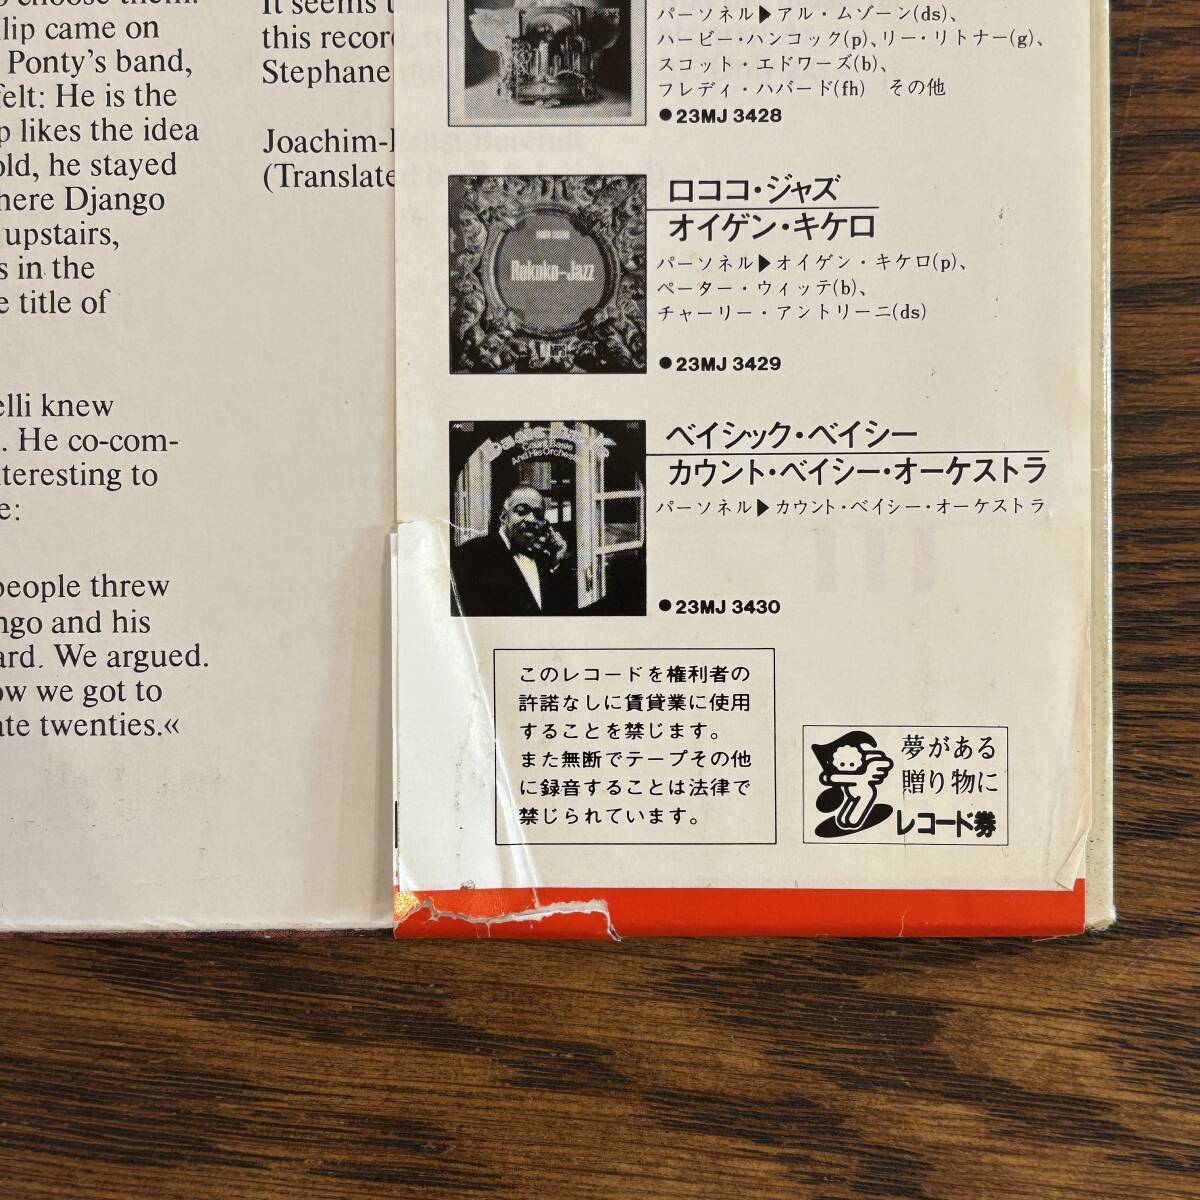 choose them.
lip came on
Ponty's band,
felt: He is the
p likes the idea
old, he stayed
here Django
upstairs,
s in the
e title of
elli knew
. He co-com-
nteresting to
e:
people threw
ngo and his
ard. We argued.
ow we got to
ate twenties.«
It seems
this record
Stephane
Joachim-
(Translated
パーソネル▶アル・ムゾーン(ds)、
ハービー・ハンコック(p)、リー・リトナー(g)、
スコット・エドワーズ(b)、
フレディ・ハバード(fh) その他
●23MJ 3428
Rokoko-Jazz
MPS
ロココ・ジャズ
オイゲン・キケロ
パーソネル▶オイゲン・キケロ(p)、
ペーター・ウィッテ(b)、
チャーリー・アントリーニ(ds)
●23MJ 3429
Count Basie
And His Orchestra
ベイシック・ベイシー
カウント・ベイシー・オーケストラ
パーソネル▶カウント・ベイシー・オーケストラ
●23MJ 3430
このレコードを権利者の
許諾なしに賃貸業に使用
することを禁じます。
また無断でテープその他
に録音することは法律で
禁じられています。
夢がある
贈り物に
レコード券